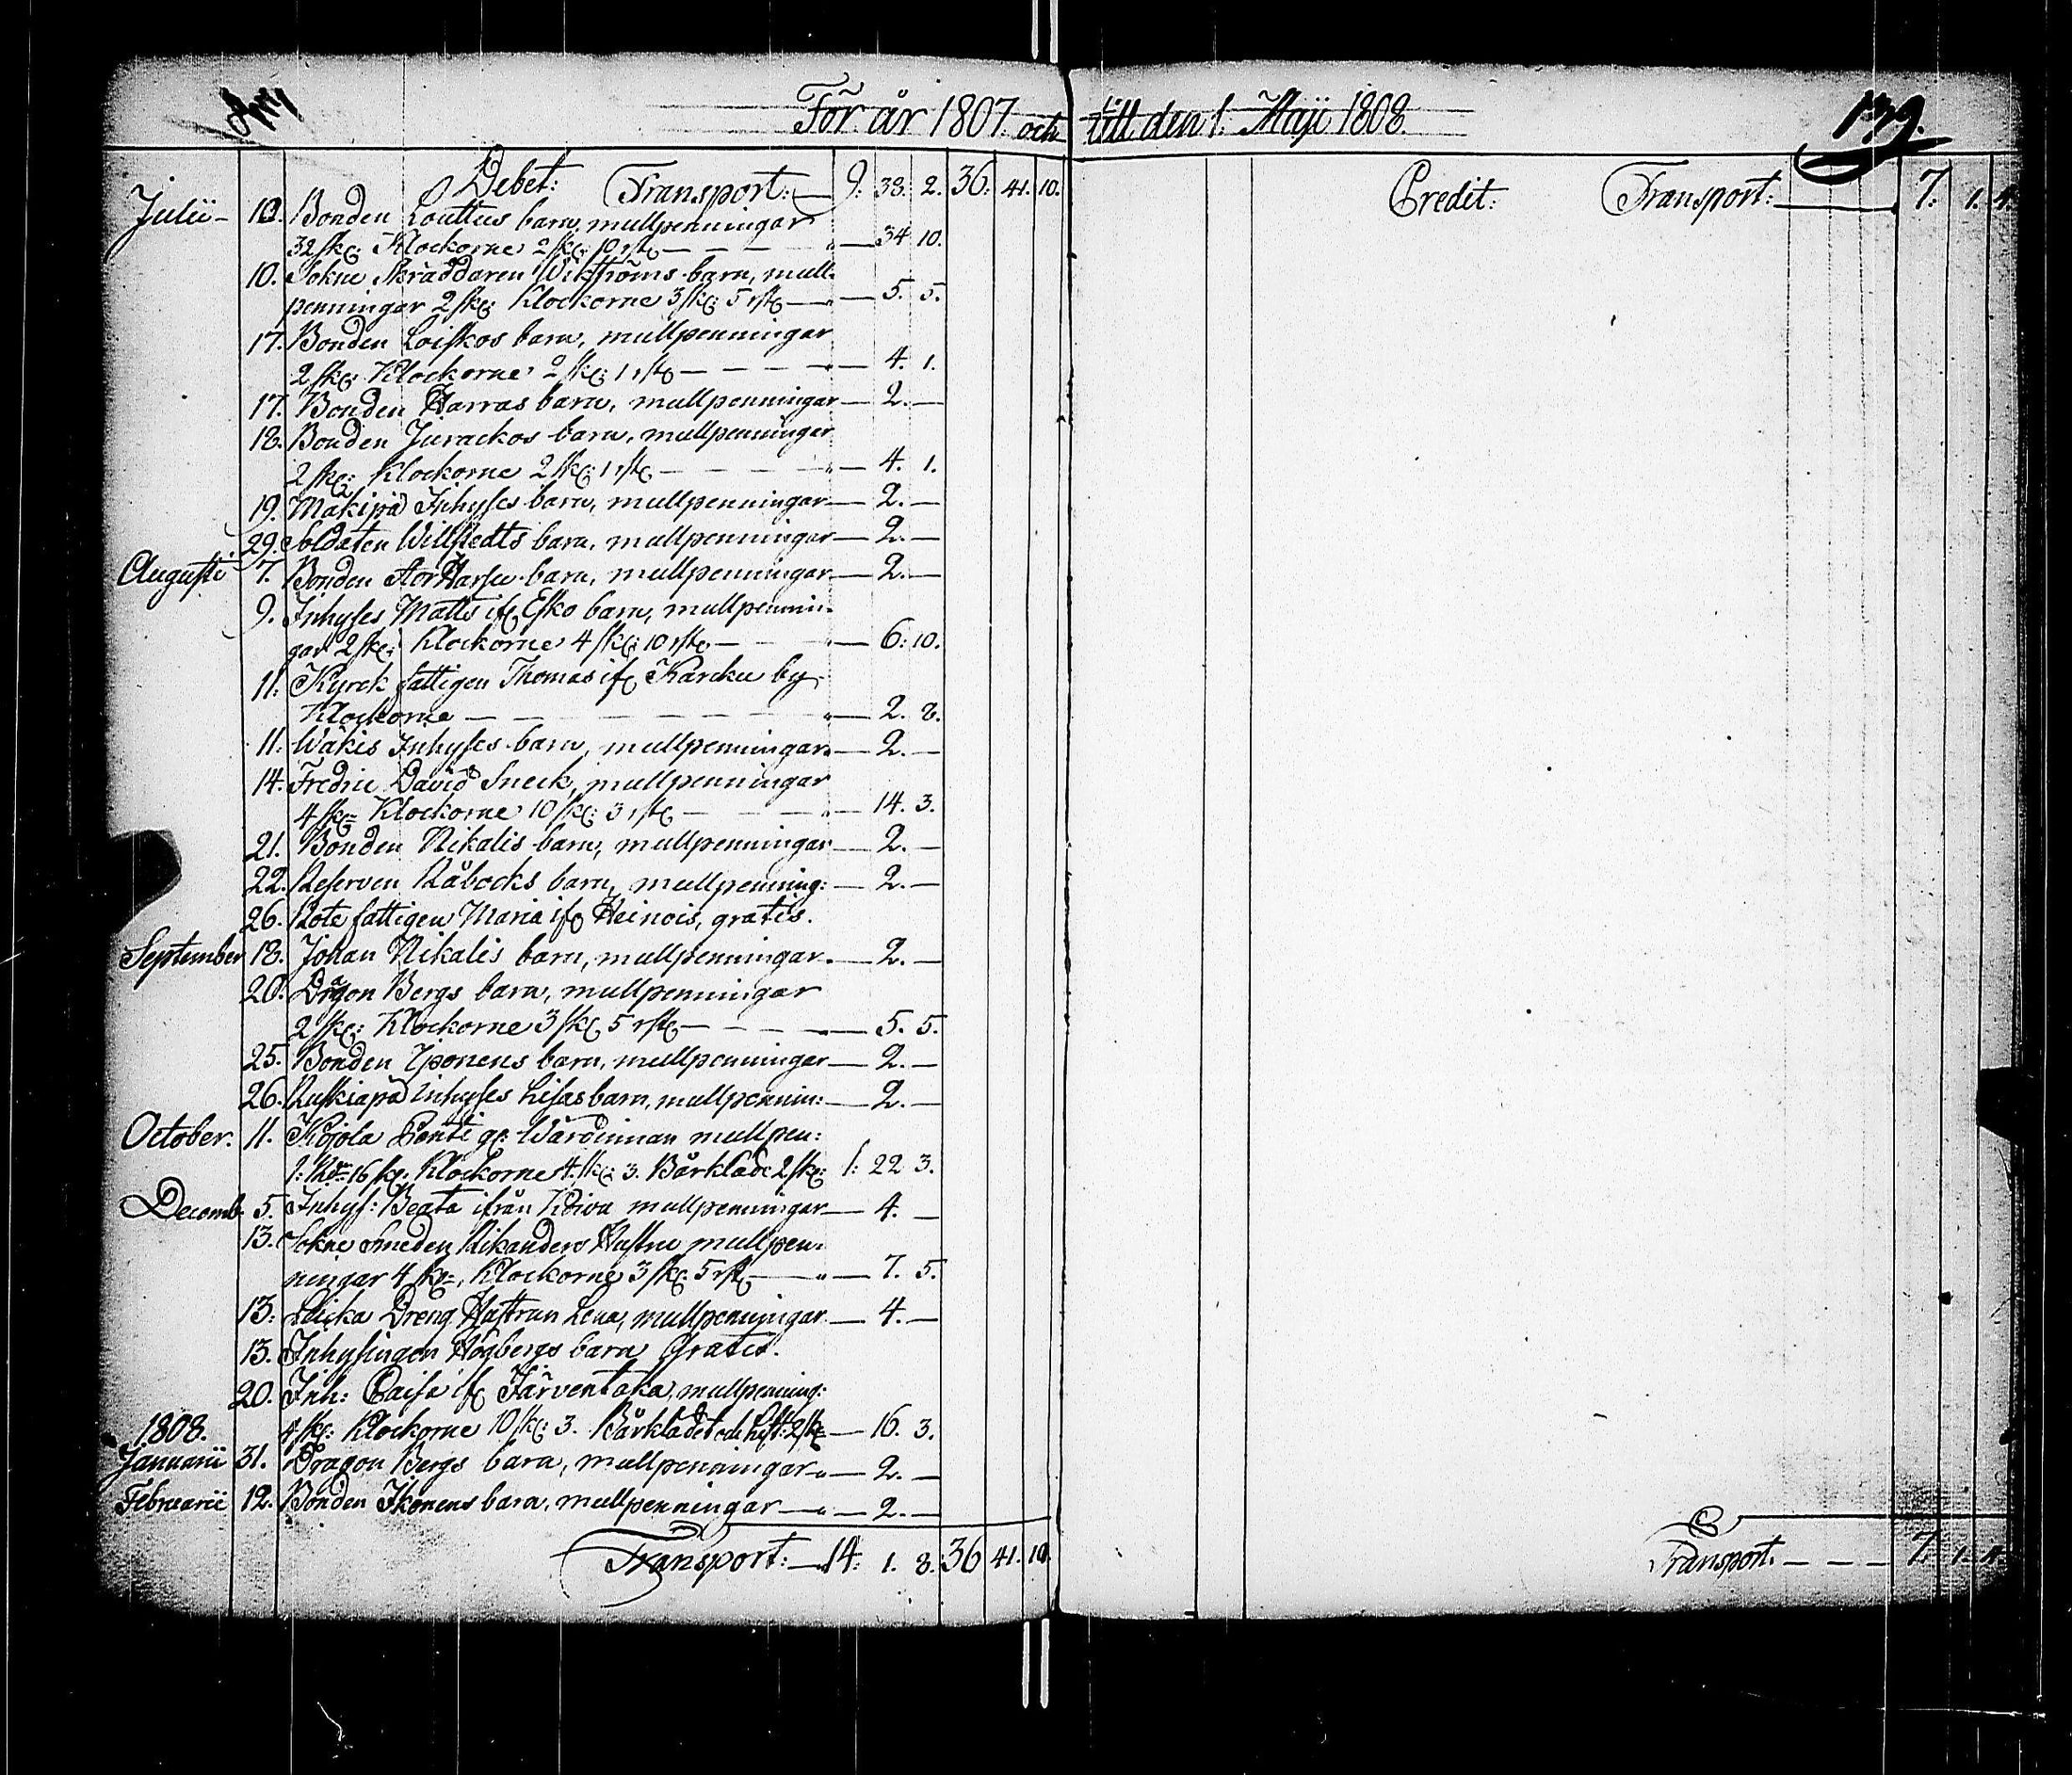 För år 1807 och till den 1. Maji 1808.
139.
Debet: Transport: 9: 38. 2. 36: 41. 10.
Julii 10. Bonden Louttus barn, mullpenningar
32 skg: Klockorne 2 skg: 10 rst. 34 10.
10. Sokne Skräddaren Wikströms barn, mull-
penningar 2 skg: Klockorne 3 skg: 5 rst. 5. 5.
17. Bonden Loiskos barn, mullpenningar
2 skg: Klockorne 2 skg: 1 rst. 4. 1.
17. Bonden Harras barn, mullpenningar 2. —
18. Bonden Jurackos barn, mullpenningar
2 skg: Klockorne 2 skg: 1 rst. 4. 1.
19. Mäkipää Inhyses barn, mullpenningar 2. —
29. Soldaten Willstedts barn, mullpenningar 2. —
Augusti 7. Bonden barn, mullpenningar 2. —
9. Inhyses Matts if. Esko barn, mullpennin-
gar 2 skg: Klockorne 4 skg: 10 rst. 6: 10.
11. Kyrck fattigen Thomas if. Karcku by
Klockorne 2. 8.
11. Wäkis Inhyses barn, mullpenningar 2. —
14. Fredric David Sneck, mullpenningar
4 skg: Klockorne 10 skg: 3 rst. 14. 3.
21. Bonden Nikalis barn, mullpenningar 2. —
22. Reserven Råbocks barn, mullpenning: 2. —
26. Rote fattigen Maria if. Heinois, gratis.
September 18. Johan Nikalis barn, mullpenningar 2. —
20. Dragon Bergs barn, mullpenningar
2 skg: Klockorne 3 skg 5 rst. 5. 5.
25. Bonden Iponens barn, mullpenningar 2. —
26. Ruskiapää inhyses Lisas barn, mullpennin: 2. —
October. 11. Kojola Pentti g: Wärdinnan mullpen:
1: Rdr 16 sk: Klockorne 4 sk: 3. Bårkläde 2 sk: 1: 22 3.
Decemb. 5. Inhys: Beata ifrån Koiva mullpenningar 4. —
13. Sokne Smeden Nikanders Hustru mullpen-
ningar 4 sk:, Klockorne 3 sk: 5 rst. 7. 5.
13. Dreng Hustrun Lena, mullpenningar 4. —
13. Inhysingen Högbergs barn Gratis.
20. Inh: Caisa if. Järventaka, mullpenning:
4 sk: Klockorne 10 sk: 3. Bårklädet och 2 sk: 16. 3.
1808.
Januarii 31. Dragon Bergs barn, mullpenningar 2. —
Februarii 12. Bonden Ikonens barn, mullpenningar 2. —
Transport: 14: 1. 8. 36 41. 10.
Credit: Transport: 7: 1. 4.
Transport. 7. 1. 4.